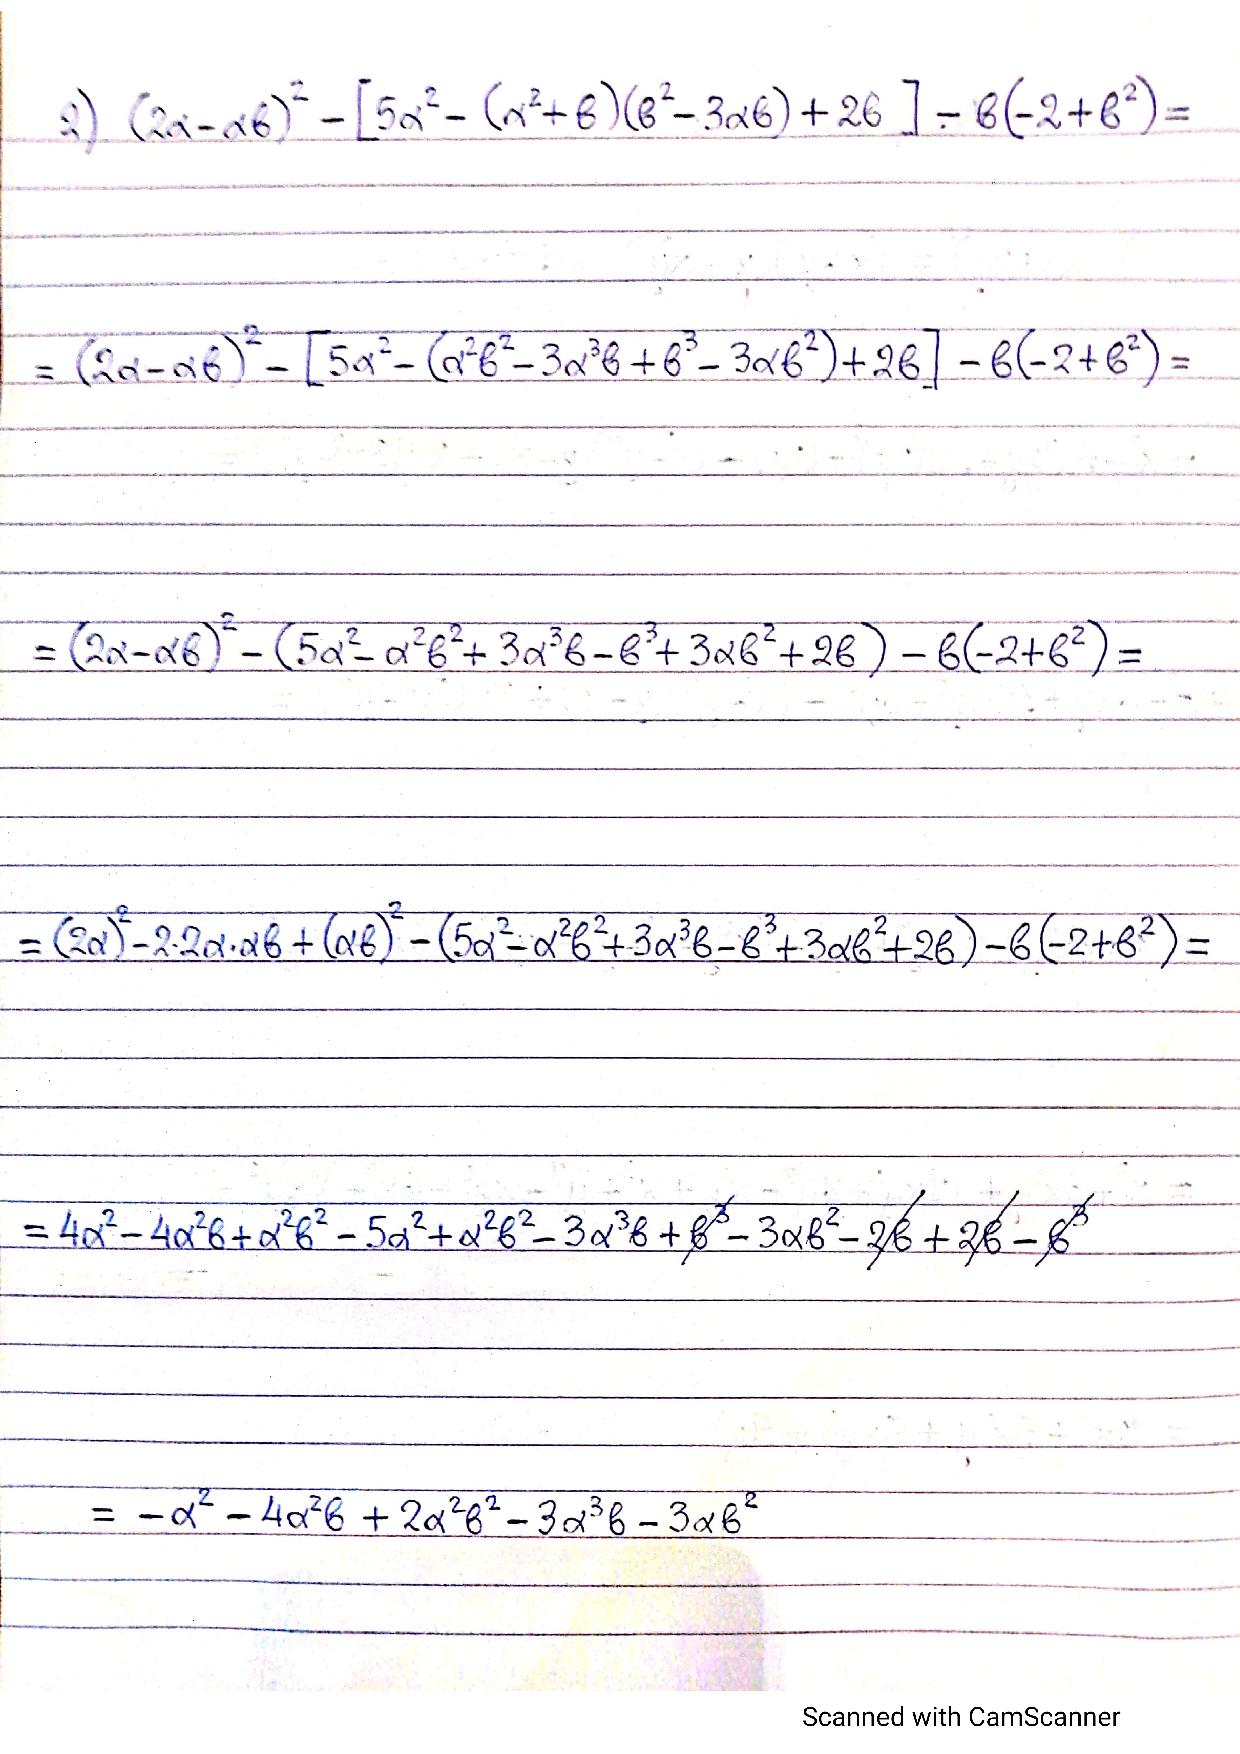 2) (2α-αβ)² - [5α² - (α²+β)(β²-3αβ)+2β] - β(-2+β²)=
= (2α-αβ)² - [5α² - (α²β²-3α³β+β³-3αβ²)+2β] - β(-2+β²)=
= (2α-αβ)² - (5α²-α²β²+3α³β-β³+3αβ²+2β) - β(-2+β²)=
= (2α)²-2·2α·αβ+(αβ)² - (5α²-α²β²+3α³β-β³+3αβ²+2β)-β(-2+β²)=
= 4α²-4α²β+α²β²-5α²+α²β²-3α³β+β³-3αβ²-2β+2β-β³
= -α²-4α²β+2α²β²-3α³β-3αβ²
Scanned with CamScanner